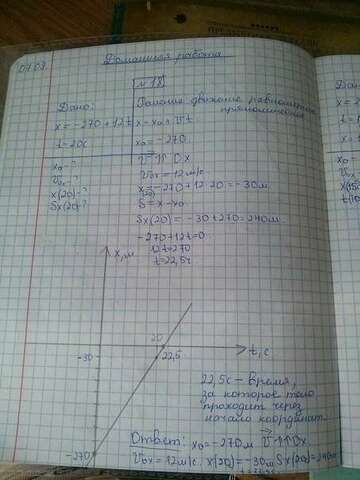 07.09.
Домашняя работа
№ 18
Дано:
x = -270 + 12t
t - 20c
x₀ - ?
Vₓ - ?
x(20) - ?
Sx(20) - ?
движение равномерное
прямолинейное
x = x₀ + Vt
x₀ = -270
V ↑↑ Ox
V₀x = 12 м/с
x(20) = -270 + 12·20 = -30м
S = x - x₀
Sx(20) = -30 + 270 = 240м
-270 + 12t = 0
12t = 270
t = 22,5c
x, м
20
-30
22,5
t, c
-270
22,5c - время,
за которое тело
проходит через
начало координат.
Ответ: x₀ = -270м V ↑↑ Ox
V₀x = 12м/с. x(20) = -30м Sx(20) = 240м